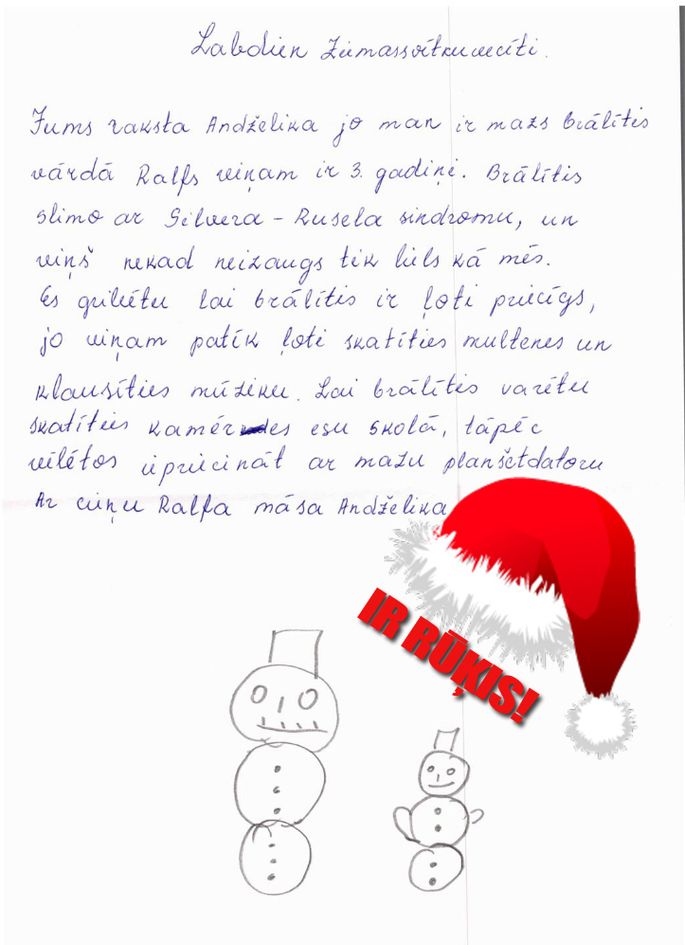 Labdien Ziemassvētku vecīti.
Jums raksta Andželika jo man ir mazs brālītis
vārdā Ralfs viņam ir 3. gadiņi. Brālītis
slimo ar Silvera - Rusela sindromu, un
viņš nekad neizaugs tik liels kā mēs.
Es gribētu lai brālītis ir ļoti priecīgs,
jo viņam patīk ļoti skatīties multenes un
klausīties mūziku. Lai brālītis varētu
skatīties kamēr es esu skolā, tāpēc
vēlētos iepriecināt ar mazu planšetdatoru
Ar cieņu Ralfa māsa Andželika
IR RŪĶIS!